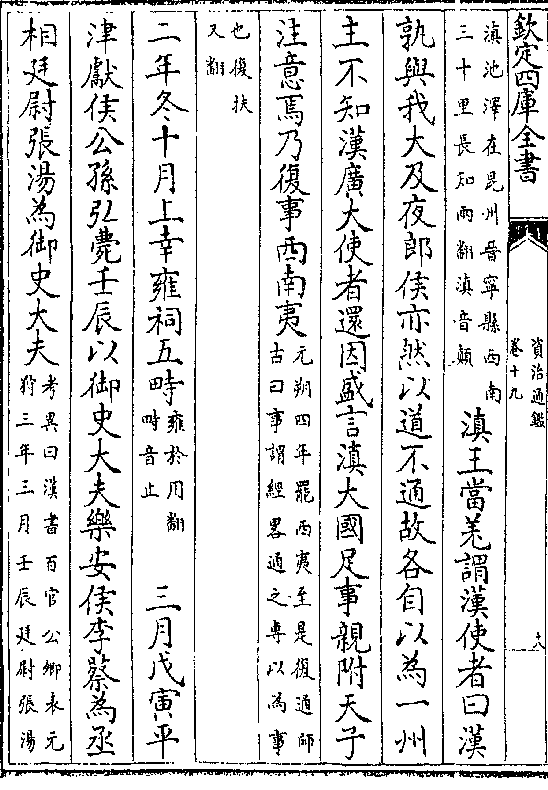 欽定四庫全書
資治通鑑
卷十九
十八
滇池澤在昆州晋寧縣西南
三十里長知兩翻滇音顛
滇王當羌謂漢使者曰漢
孰與我大及夜郎侯亦然以道不通故各自以為一州
主不知漢廣大使者還因盛言滇大國足事親附天子
注意焉乃復事西南夷
元朔四年罷西夷至是復通師
古曰事謂經畧通之專以為事
也復扶
又翻
二年冬十月上幸雍祠五畤
雍於用翻
畤音止
三月戊寅平
津獻侯公孫弘薨壬辰以御史大夫樂安侯李蔡為丞
相廷尉張湯為御史大夫
考異曰漢書百官公卿表元
狩三年三月壬辰廷尉張湯